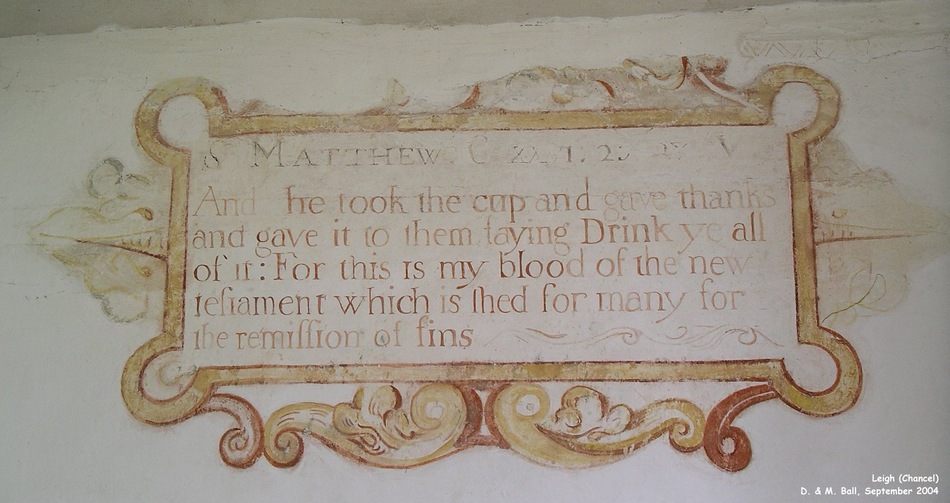 St MATTHEW
And he took the cup and gave thanks
and gave it to them, ſaying Drink ye all
of it: For this is my blood of the new
teſtament which is ſhed for many for
the remiſſion of ſins
Leigh (Chancel)
D. & M. Ball, September 2004